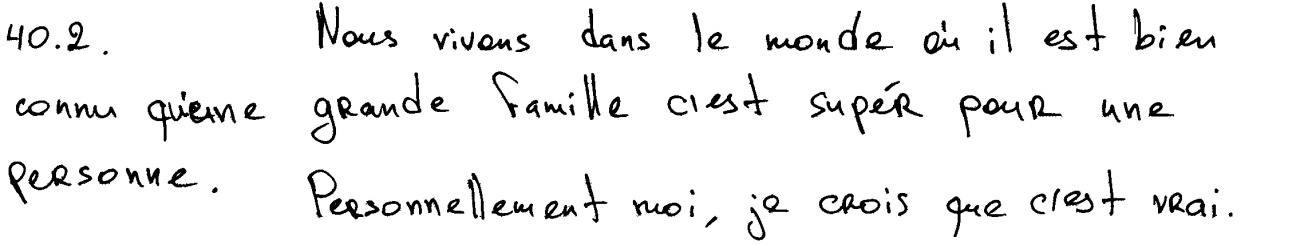 40.2. Nous vivons dans le monde où il est bien
connu qu'une grande famille c'est supér pour une
personne. Personnellement moi, je crois que c'est vrai.